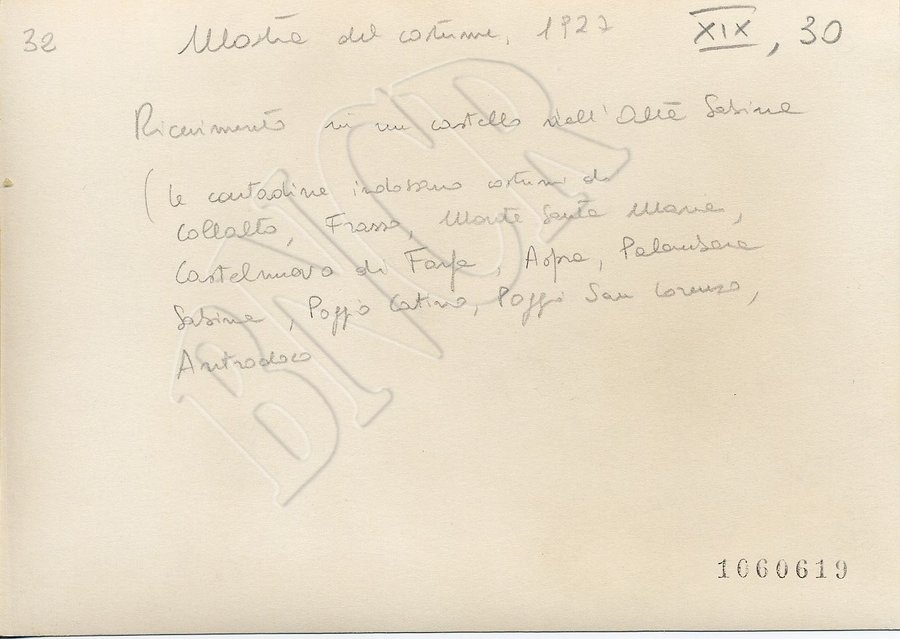 32 Mostra del costume, 1927 XIX, 30
Ricevimento in un castello dell'Alta Sabina
(le contadine indossano costumi di
Collalto, Frasso, Monte Santa Maria,
Castelnuovo di Farfa, Aspra, Palombara
Sabina, Poggio Catino, Poggio San Lorenzo,
Antrodoco
BNCR
1060619